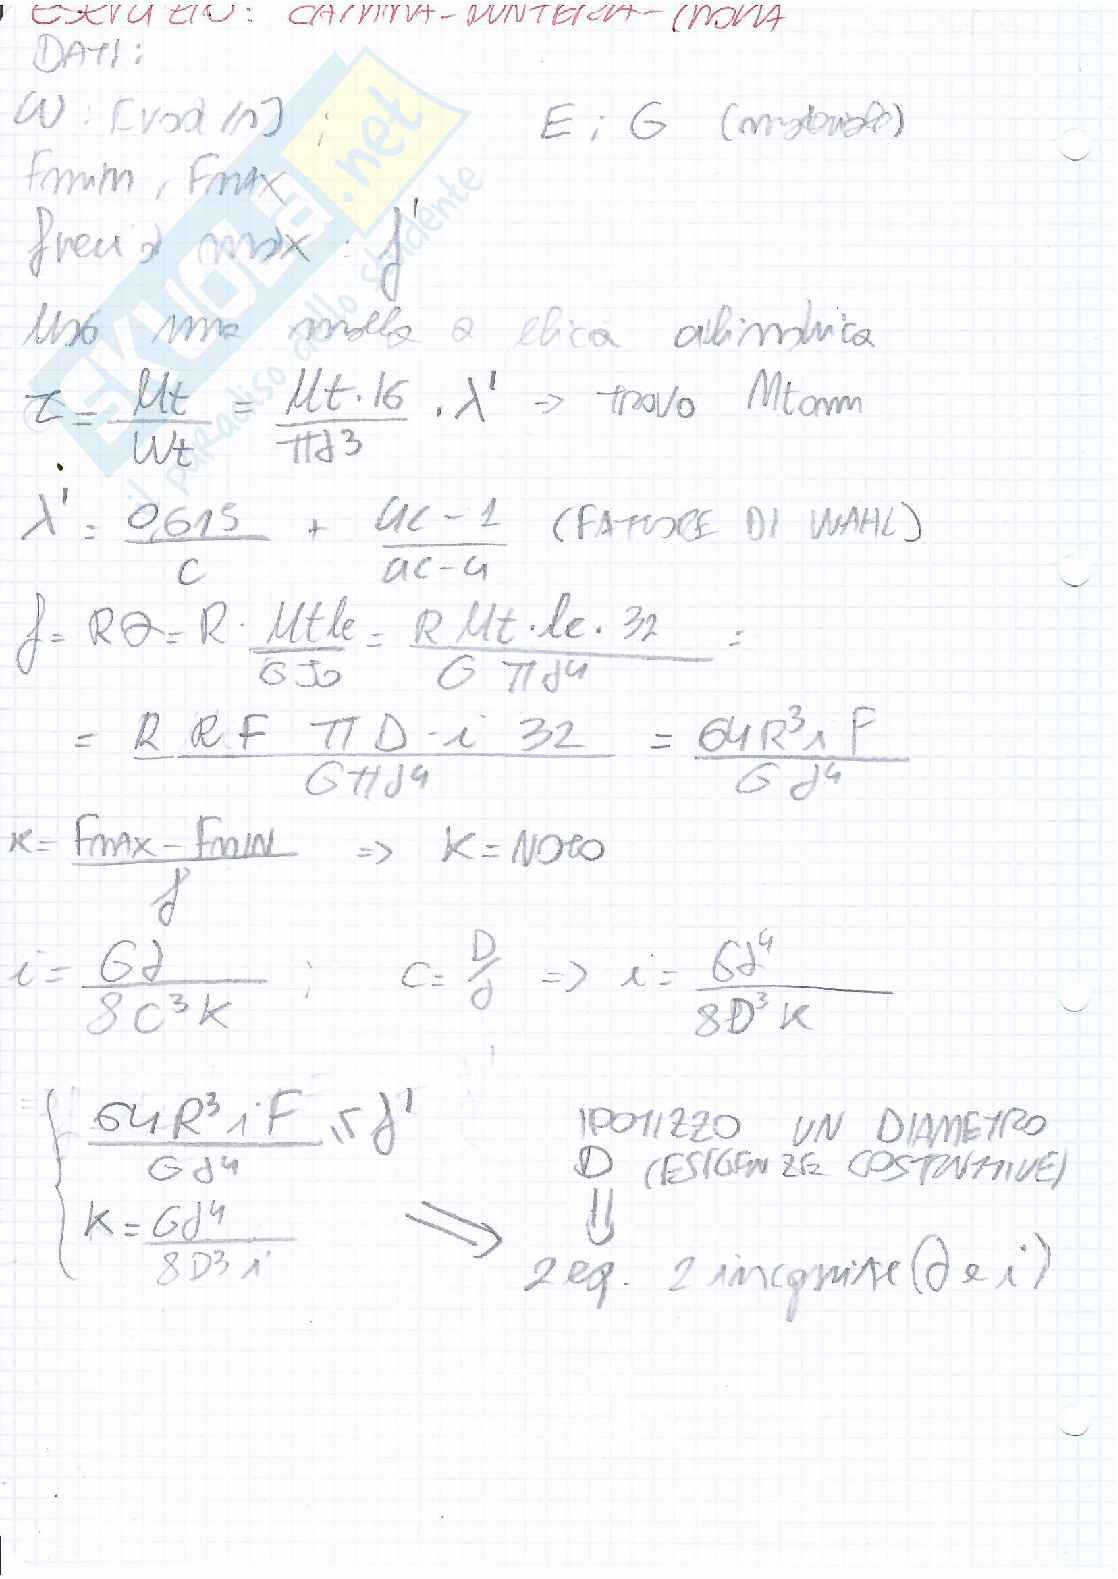 ESERCIZIO: CAMMA - PUNTERIA -
DATI:
ω: [rad/s] ; E ; G (materiale)
Fmin , FMAX
freccia max : f'
Uso una molla a elica cilindrica
τ = Mt/Wt = Mt·16/πd³ · λ' => trovo Mtamm
λ' = 0,615/c + 4c-1/4c-4 (FATTORE DI WAHL)
f = Rθ = R · Mtle/GJo = R Mt·le·32/G πd⁴ =
= R RF πD·i 32/Gπd⁴ = 64R³iF/Gd⁴
K = FMAX - FMIN/f => K = NOTO
i = Gd/8C³K ; C = D/d => i = Gd⁴/8D³K
64R³iF/Gd⁴ ≤ f'
IPOTIZZO UN DIAMETRO
D (ESIGENZE COSTRUTTIVE)
K = Gd⁴/8D³i
2 eq. 2 incognite (d e i)
SKUOLA.net
il paradiso dello studente